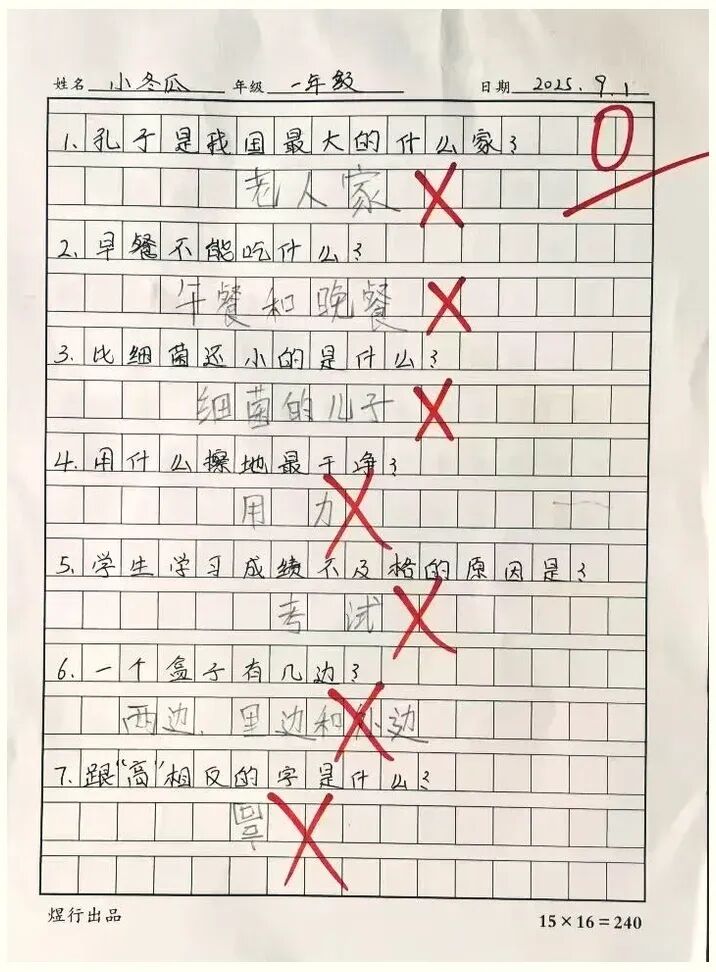 姓名 小冬瓜 年级 一年级 日期 2025.9.1
0
1.孔子是我国最大的什么家?
老人家
2.早餐不能吃什么?
午餐和晚餐
3.比细菌还小的是什么?
细菌的儿子
4.用什么擦地最干净?
用力
5.学生学习成绩不及格的原因是?
考试
6.一个盒子有几边?
两边.里边和外边
7.跟"高"相反的字是什么?
煜行出品
15×16=240